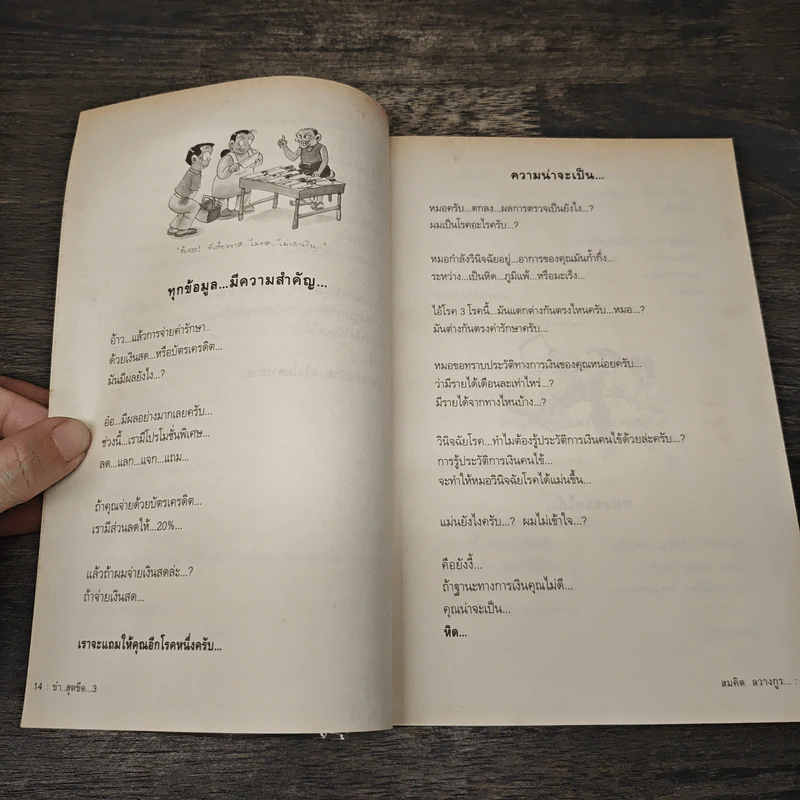 ทุกข้อมูล...มีความสำคัญ...
อ้าว...แล้วการจ่ายค่ารักษา..
ด้วยเงินสด...หรือบัตรเครดิต...
มันมีผลยังไง...?
อ๋อ...มีผลอย่างมากเลยครับ...
ช่วงนี้...เรามีโปรโมชั่นพิเศษ...
ลด...แลก...แจก...แถม...
ถ้าคุณจ่ายด้วยบัตรเครดิต...
เรามีส่วนลดให้...20%...
แล้วถ้าผมจ่ายเงินสดล่ะ...?
ถ้าจ่ายเงินสด...
เราจะแถมให้คุณอีกโรคหนึ่งครับ...
14 : ขำ..สุดขีด...3
ความน่าจะเป็น...
หมอครับ...ตกลง...ผลการตรวจเป็นยังไง...?
ผมเป็นโรคอะไรครับ...?
หมอกำลังวินิจฉัยอยู่...อาการของคุณมันก้ำกึ่ง...
ระหว่าง...เป็นหิด...ภูมิแพ้...หรือมะเร็ง...
ไอ้โรค 3 โรคนี้...มันแตกต่างกันตรงไหนครับ...หมอ...?
มันต่างกันตรงค่ารักษาครับ...
หมอขอทราบประวัติทางการเงินของคุณหน่อยครับ...
ว่ามีรายได้เดือนละเท่าไหร่...?
มีรายได้จากทางไหนบ้าง...?
วินิจฉัยโรค...ทำไมต้องรู้ประวัติการเงินคนไข้ด้วยล่ะครับ...?
การรู้ประวัติการเงินคนไข้...
จะทำให้หมอวินิจฉัยโรคได้แม่นขึ้น...
แม่นยังไงครับ...? ผมไม่เข้าใจ...?
คืองี้...
ถ้าฐานะทางการเงินคุณไม่ดี...
คุณน่าจะเป็น...
หิด...
สมคิด ลวางกูร... :